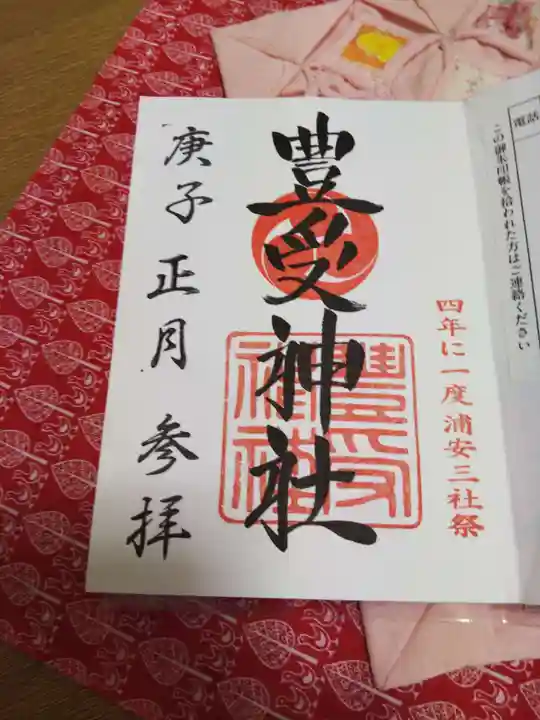 電話
この御朱印帳を拾われた方はご連絡ください
四年に一度浦安三社祭
豊受神社
豊受神社
庚子 正月 参拝